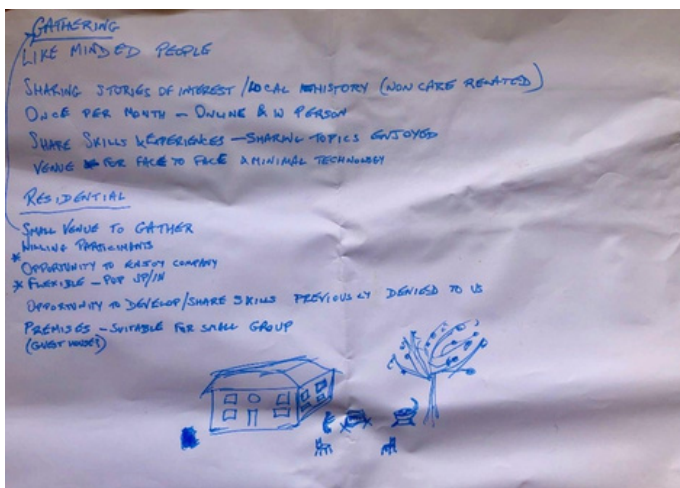 GATHERING
LIKE MINDED PEOPLE
SHARING STORIES OF INTEREST/LOCAL HISTORY (NON CARE RELATED)
ONCE PER MONTH – ONLINE & IN PERSON
SHARE SKILLS & EXPERIENCES – SHARING TOPICS ENJOYED
VENUE FOR FACE TO FACE & MINIMAL TECHNOLOGY
RESIDENTIAL
SMALL VENUE TO GATHER
WILLING PARTICIPANTS
* OPPORTUNITY TO ENJOY COMPANY
* FLEXIBLE – POP UP/IN
OPPORTUNITY TO DEVELOP/SHARE SKILLS PREVIOUSLY DENIED TO US
PREMISES – SUITABLE FOR SMALL GROUP
(GUEST HOUSE)